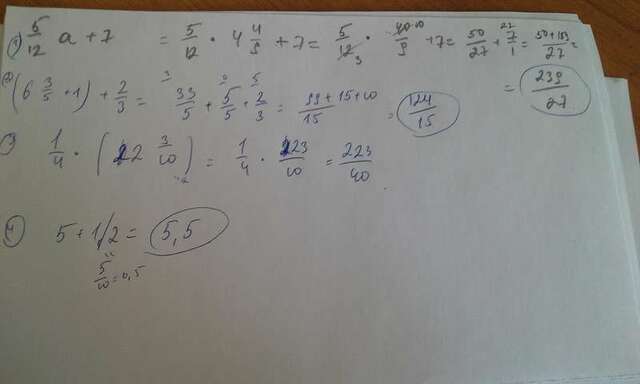 1) 5/12 a + 7 = 5/12 · 4 4/9 + 7 = 5/12 3 · 40 10/9 + 7 = 50/27 + 27 7/1 = 50+189/27 =
= 239/27
2) (6 3/5 + 1) + 2/3 = 3 33/5 + 5/5 + 5 2/3 = 99+15+10/15 = 124/15
3) 1/4 · (22 3/10) = 1/4 · 223/10 = 223/40
4) 5 + 1/2 = 5,5
5/10 = 0,5